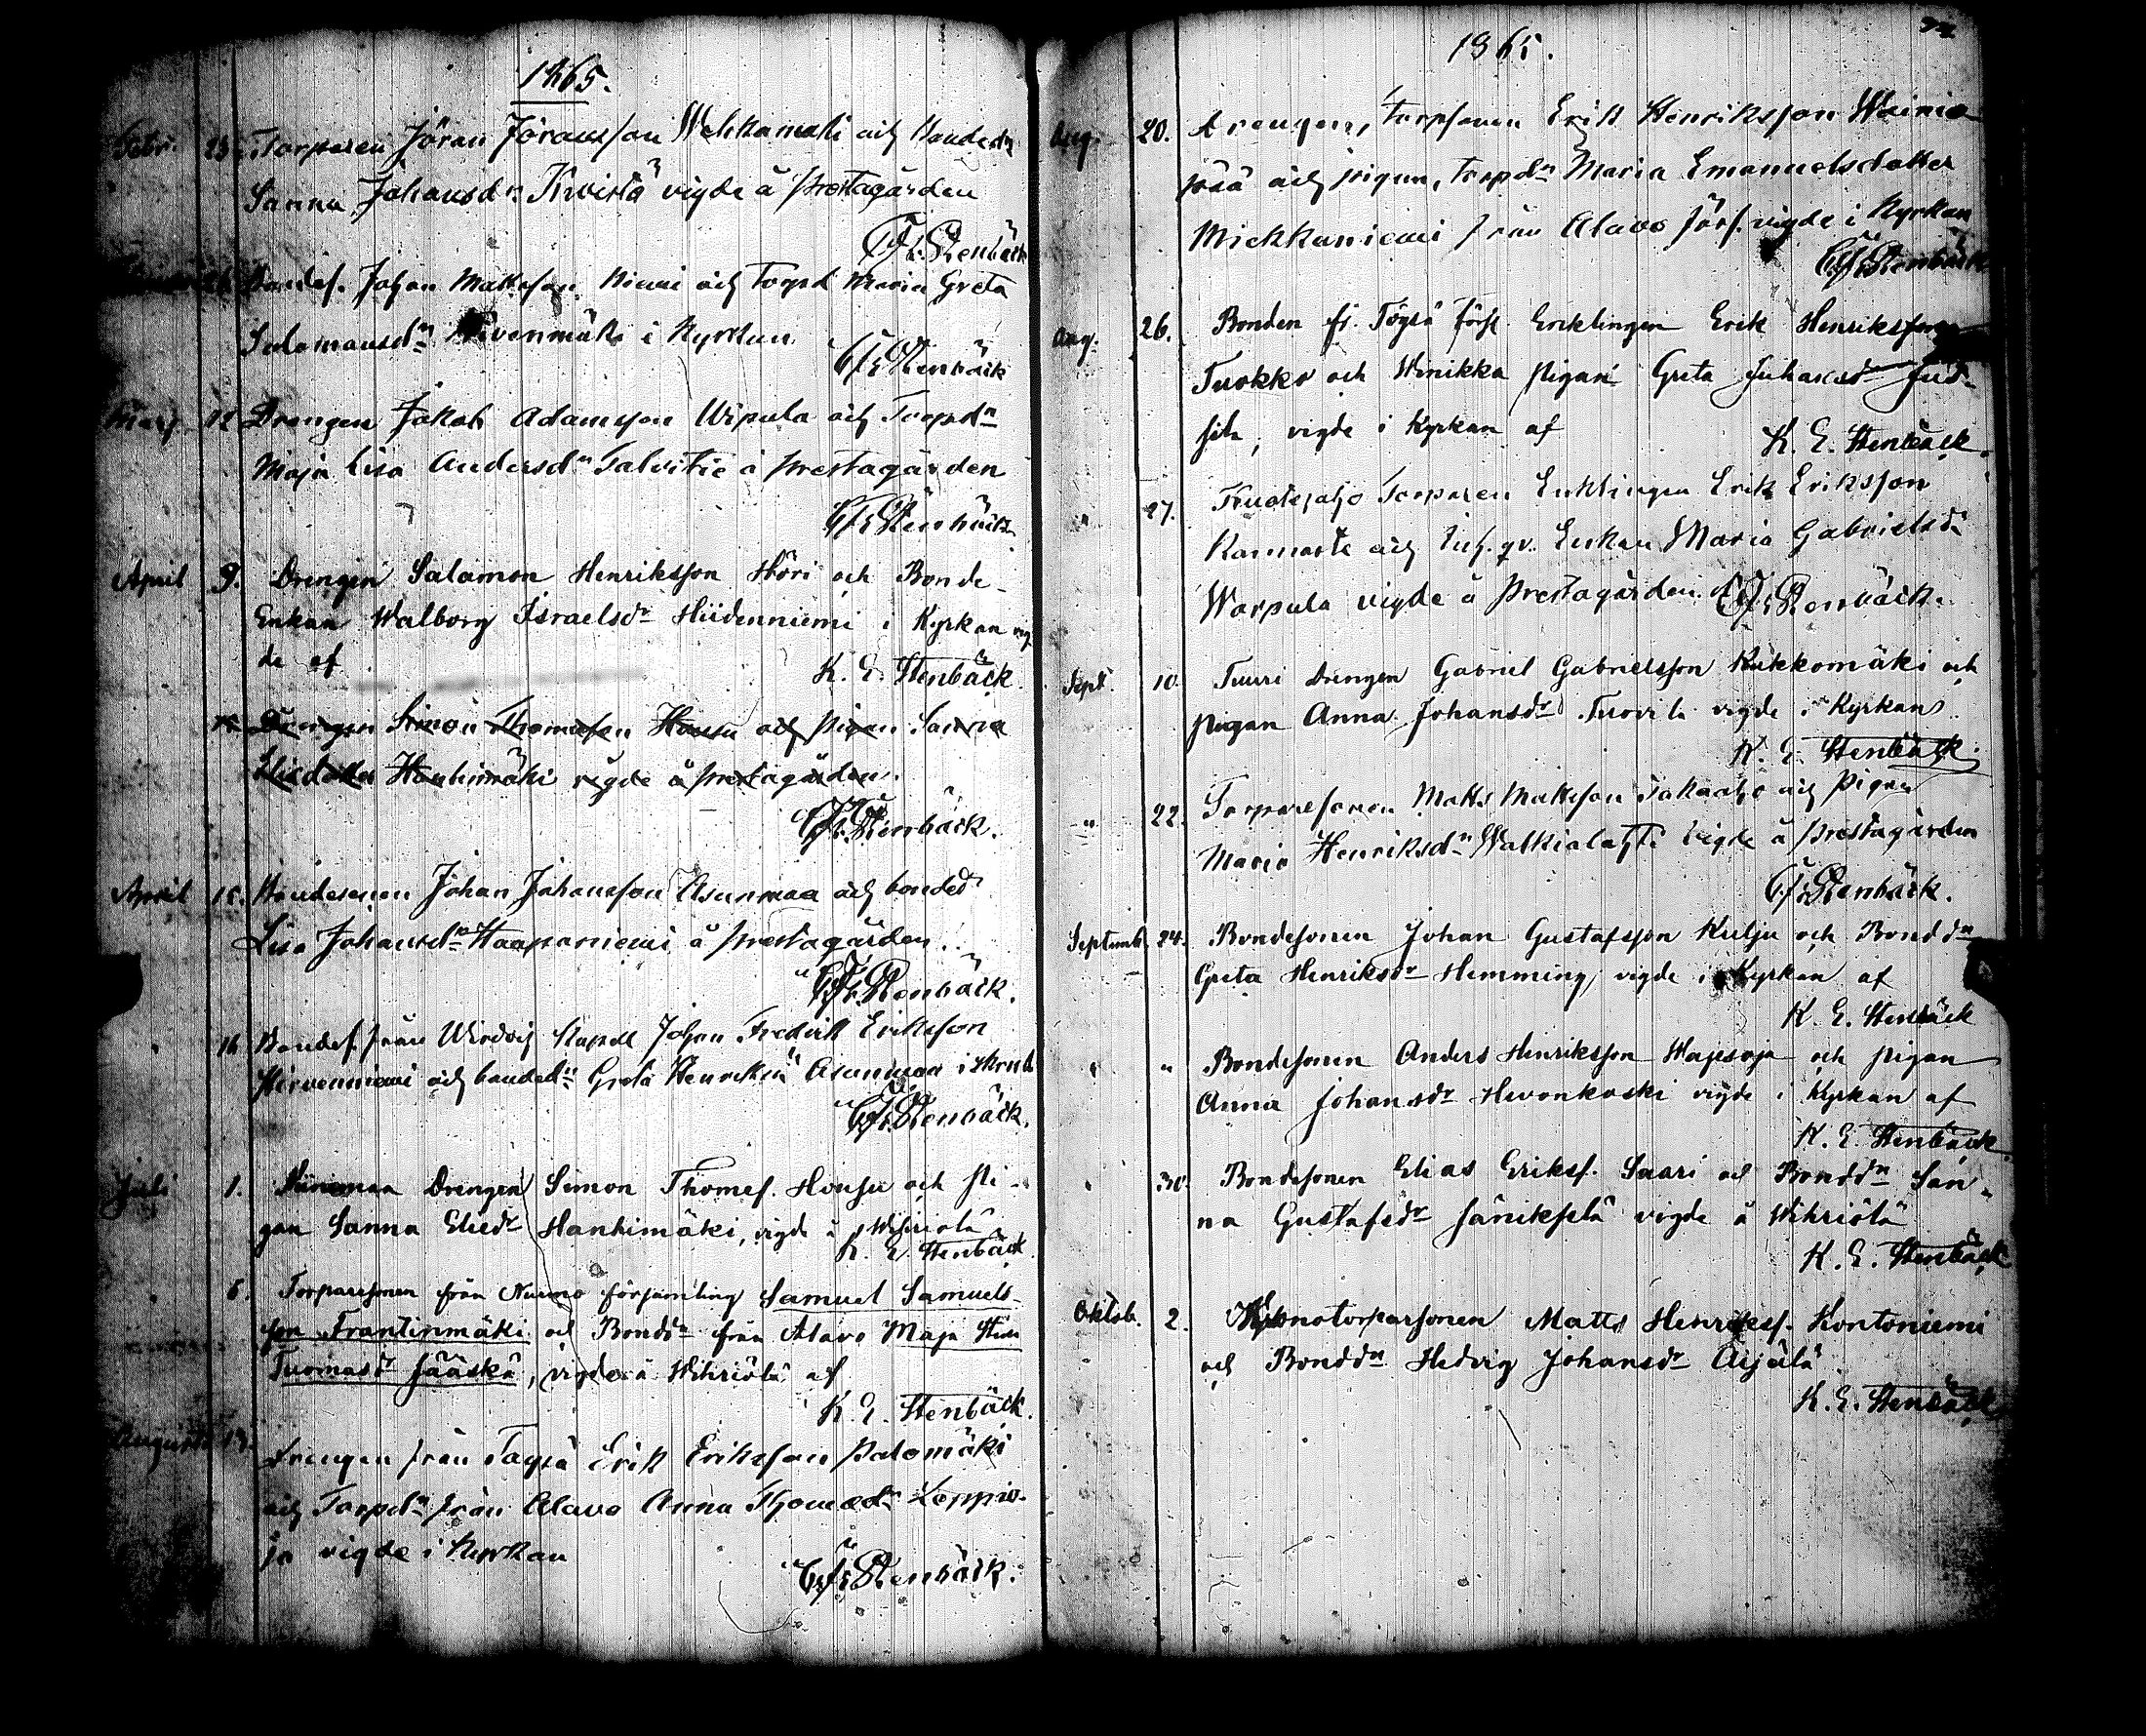 1865.
Febr. 23. Torparen Jöran Jöransson Wehkamäki och Bonded.
Sanna Johansdr. Kvistå vigde å prestagården
C. Fr. Stenbäck
26. Bondes. Johan Mattsson Niemi och Torpd. Maria Greta
Salomonsdr. i Kyrkan
C. Fr. Stenbäck
Mars 12 Drengen Jakob Adamsson Wipula och Torpdn
Maja Lisa Andersdr Talvitie å prestagården
C. Fr. Stenbäck
April 9. Drengen Salamon Henriksson Höri och Bonde-
Enkan Walborg Israelsdr Hiidenniemi i Kyrkan vig-
de af
K. E. Stenbäck
15. Drengen Simon Thomasson Housu och pigan Sanna
Eliedotter Hanhimäki vigde å prestagården.
C. Fr. Stenbäck.
April 15. Bondesonen Johan Johansson Asunmaa och bonded
Lisa Johansdr Haapaniemi å prestagården.
C. Fr. Stenbäck.
16 Bondes. från Wirdois Kapell Johan Fredrik Eriksson
Hirvenniemi och bonded. Greta Henriksdr Asunmaa i
C. Fr. Stenbäck.
Juli 1. Drengen Simon Thomes. Housu och pi-
gan Sanna Eliedr Hanhimäki, vigde å Wihriälä
K. E. Stenbäck
6. Torparesonen från Nurmo församling Samuel Samuels-
son Frantinmäki och Bonddn från Alavo Maja Stina
Tuomasdr Jääskä, vigde å Wihriälä af
K. E. Stenbäck.
Augusti 13. Drengen från Töysä Erik Eriksson Palomäki
och Torpdn från Alavo Anna Thomædr Leppio-
ja vigde i Kyrkan
C. Fr. Stenbäck.
1865.
Aug. 20. Drengen, torpsonen Erik Henriksson Wainio
pää och pigan, torpdn Maria Emanuelsdotter
Mickkaniemi från Alavo förs. vigde i Kyrkan
C. Fr. Stenbäck
Aug. 26. Bonden fr. Töysä förs. Enklingen Erik Henriksson
Tuokko och pigan Greta Juhansdr Jud-
sila, vigde i Kyrkan af
K. E. Stenbäck.
" 27. Torparen Enklingen Erik Eriksson
och Inh. qv. Enkan Maria Gabrielsdr
Warpula vigde å prestagården. C. Fr. Stenbäck.
Sept. 10. Tuuri Drengen Gabriel Gabrielsson Kukkomäki och
pigan Anna Johansdr Tuovila vigde i Kyrkan
K. E. Stenbäck.
" 22. Torparesonen Matts Mattsson Takaaho och Pigan
Maria Henriksdr Walkialahti vigde å prestagården
C. Fr. Stenbäck.
Septemb. 24. Bondesonen Johan Gustafsson Kulju och Bonddn
Greta Henriksdr Hemming vigde i Kyrkan af
K. E. Stenbäck
" " Bondesonen Anders Henriksson och pigan
Anna Johansdr Hevonkoski vigde i Kyrkan af
K. E. Stenbäck
" 30. Bondesonen Elias Eriks. Saari och Bonddn San-
na Gustafsdr vigde å Wihriälä
K. E. Stenbäck
Oktob. 2. Kronotorparsonen Matts Henrikss. Kontoniemi
och Bonddn Hedvig Johansdr Äijälä
K. E. Stenbäck